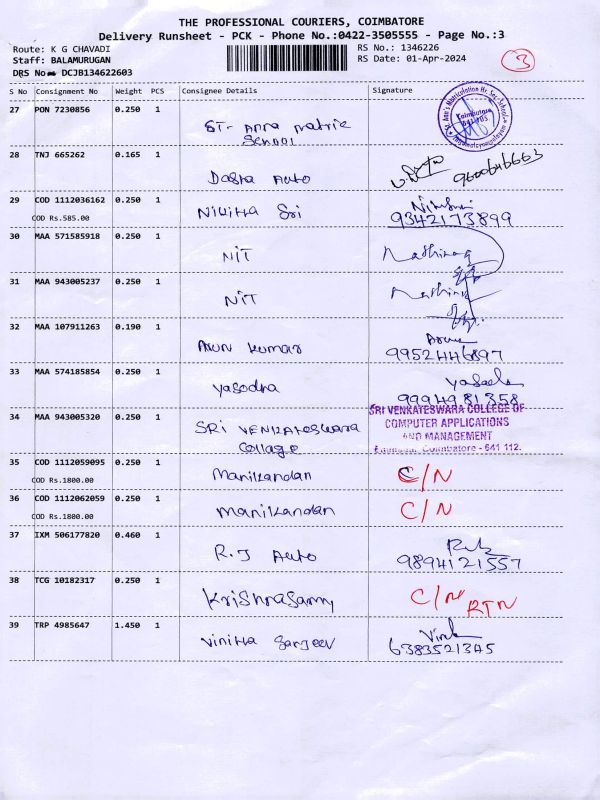 THE PROFESSIONAL COURIERS, COIMBATORE
Delivery Runsheet - PCK - Phone No.:0422-3505555 - Page No.:3
Route: K G CHAVADI RS No.: 1346226
Staff: BALAMURUGAN RS Date: 01-Apr-2024 3
DRS No DCJB134622603
S No Consignment No Weight PCS Consignee Details Signature
27 PON 7230856 0.250 1 ST- Anna Matric
School
28 TNJ 665262 0.165 1 Dasha Auto 9600646663
29 COD 1112036162 0.250 1 Nikitha Sri
COD Rs.585.00 9342173899
30 MAA 571585918 0.250 1 NIT
31 MAA 943005237 0.250 1 NIT
32 MAA 107911263 0.190 1 Arun Kumar Arun
9952446897
33 MAA 574185854 0.250 1 yasodha
9994981358
34 MAA 943005320 0.250 1 SRI VENKATESWARA
College
SRI VENKATESWARA COLLEGE OF
COMPUTER APPLICATIONS
AND MANAGEMENT
Coimbatore - 641 112.
35 COD 1112059095 0.250 1 Manikandan C/N
COD Rs.1800.00
36 COD 1112062059 0.250 1 Manikandan C/N
COD Rs.1800.00
37 IXM 506177820 0.460 1 R.J Auto
9894121557
38 TCG 10182317 0.250 1 Krishnasamy C/N RTN
39 TRP 4985647 1.450 1 Vinitha Sanjeev
6383521345